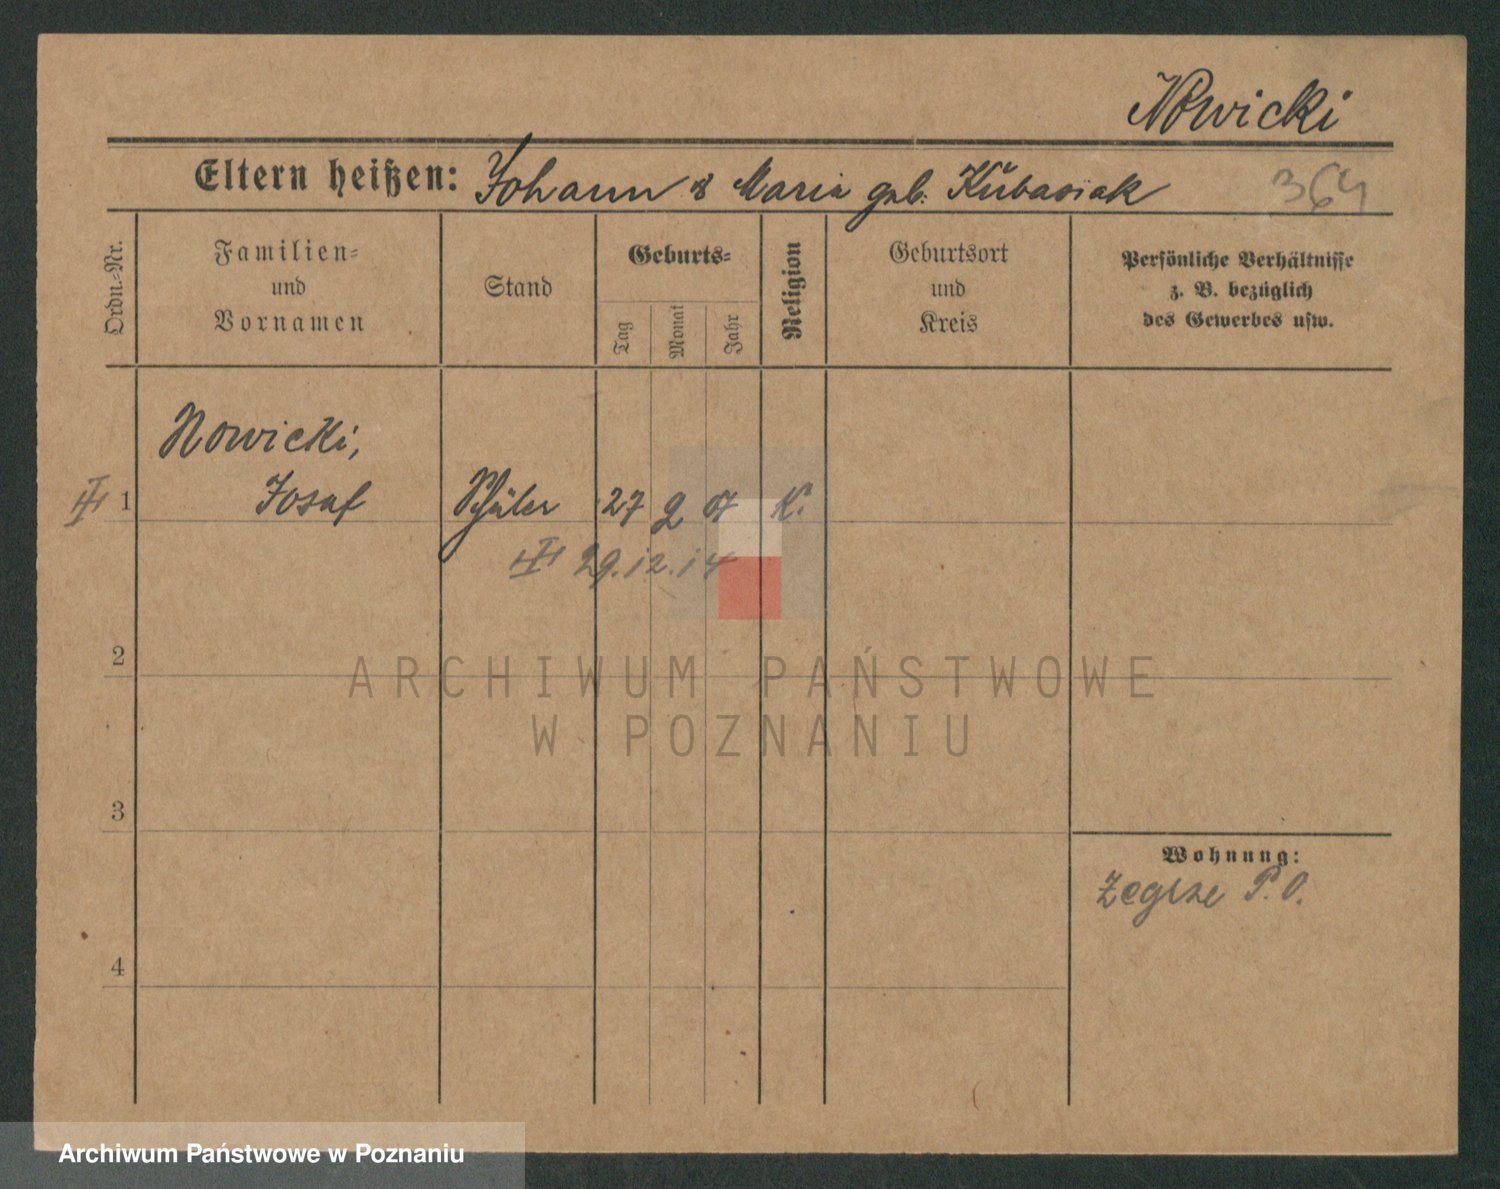 Nowicki
Eltern heißen: Johann & Maria geb. Kubasiak 364
Ordn.-Nr.
Familien- und Vornamen
Stand
Geburts-
Tag
Monat
Jahr
Religion
Geburtsort und Kreis
Persönliche Verhältnisse
z. B. bezüglich
des Gewerbes usw.
Nowicki,
1 Josef Schüler 27 2 07 K.
29.12.14
2
ARCHIWUM PAŃSTWOWE
W POZNANIU
3
Wohnung:
Zegrze P. O.
4
Archiwum Państwowe w Poznaniu